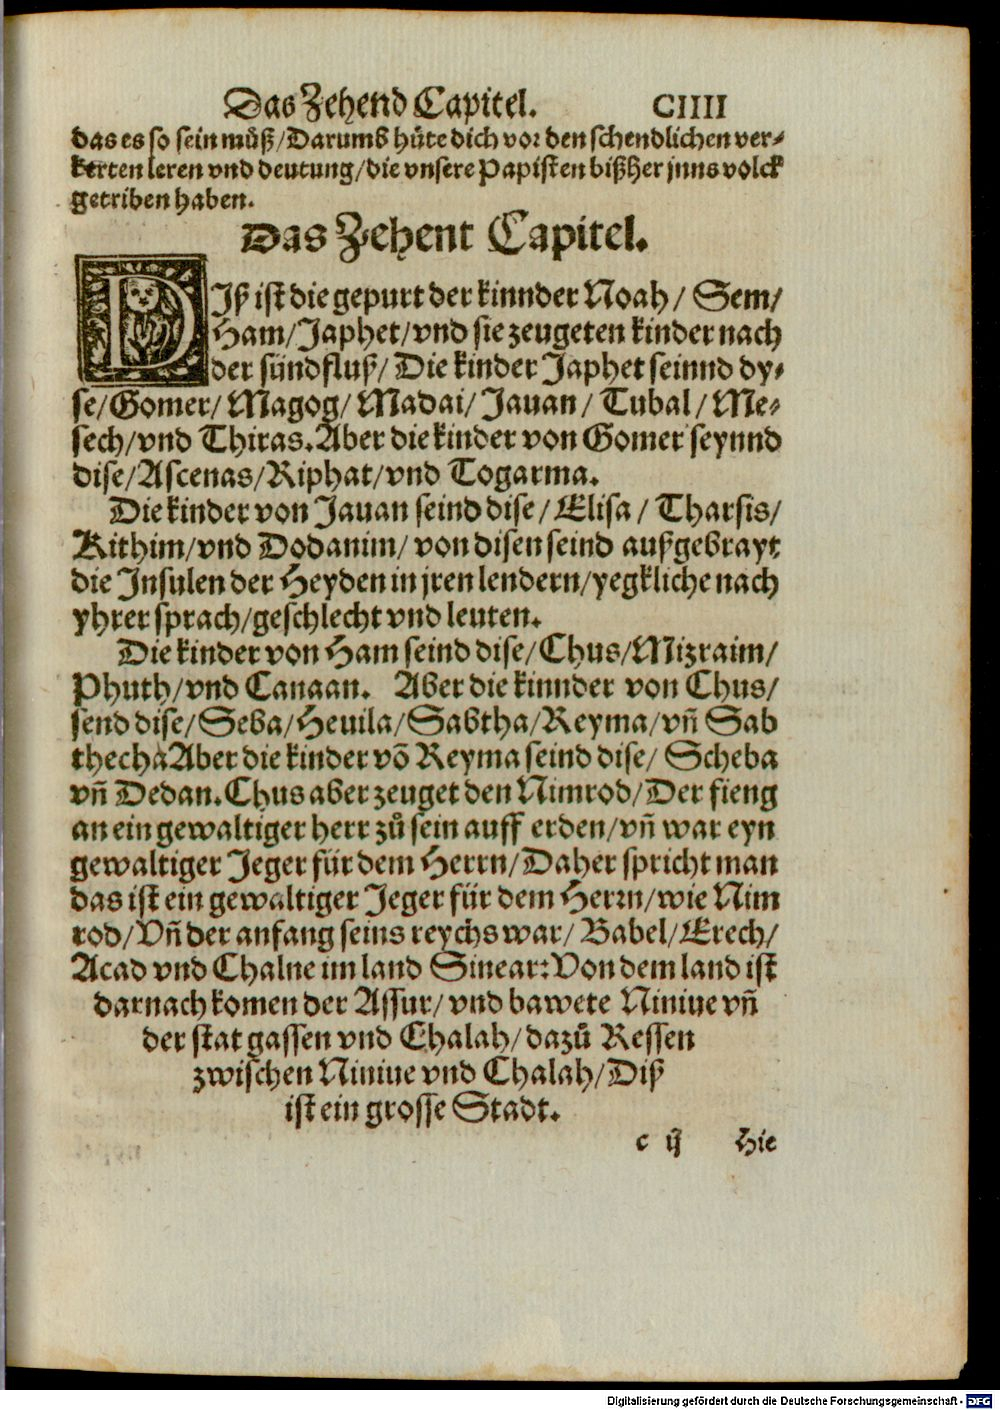 Das Zehend Capitel. CIIII
das es so sein můß/Darumb hüte dich vor den schendlichen ver-
kerten leren vnd deutung/die vnsere Papisten bißher jnns volck
getriben haben.
Das Zehent Capitel.
DIß ist die gepurt der kinnder Noah/ Sem/
Ham/Japhet/vnd sie zeugeten kinder nach
der sündfluß/ Die kinder Japhet seinnd dy-
se/Gomer/ Magog/ Madai/ Jauan/ Tubal/ Me-
sech/vnd Thiras.Aber die kinder von Gomer seynnd
dise/Ascenas/Riphat/vnd Togarma.
Die kinder von Jauan seind dise/ Elisa/ Tharsis/
Kithim/vnd Dodanim/ von disen seind außgebrayt
die Insulen der Heyden in jren lendern/yegkliche nach
yhrer sprach/geschlecht vnd leuten.
Die kinder von Ham seind dise/Chus/Mizraim/
Phuth/vnd Canaan. Aber die kinnder von Chus/
send dise/Seba/Heuila/Sabtha/Reyma/vñ Sab
thecha Aber die kinder võ Reyma seind dise/ Scheba
vñ Dedan.Chus aber zeuget den Nimrod/Der fieng
an ein gewaltiger herr zů sein auff erden/vñ war eyn
gewaltiger Jeger für dem Herrn/Daher spricht man
das ist ein gewaltiger Jeger für dem Herrn/wie Nim
rod/Vñ der anfang seins reychs war/ Babel/Erech/
Acad vnd Chalne im land Sinear:Von dem land ist
darnach komen der Assur/ vnd bawete Niniue vñ
der stat gassen vnd Chalah/dazů Ressen
zwischen Niniue vnd Chalah/Diß
ist ein grosse Stadt.
c ij Hie
Digitalisierung gefördert durch die Deutsche Forschungsgemeinschaft - DFG